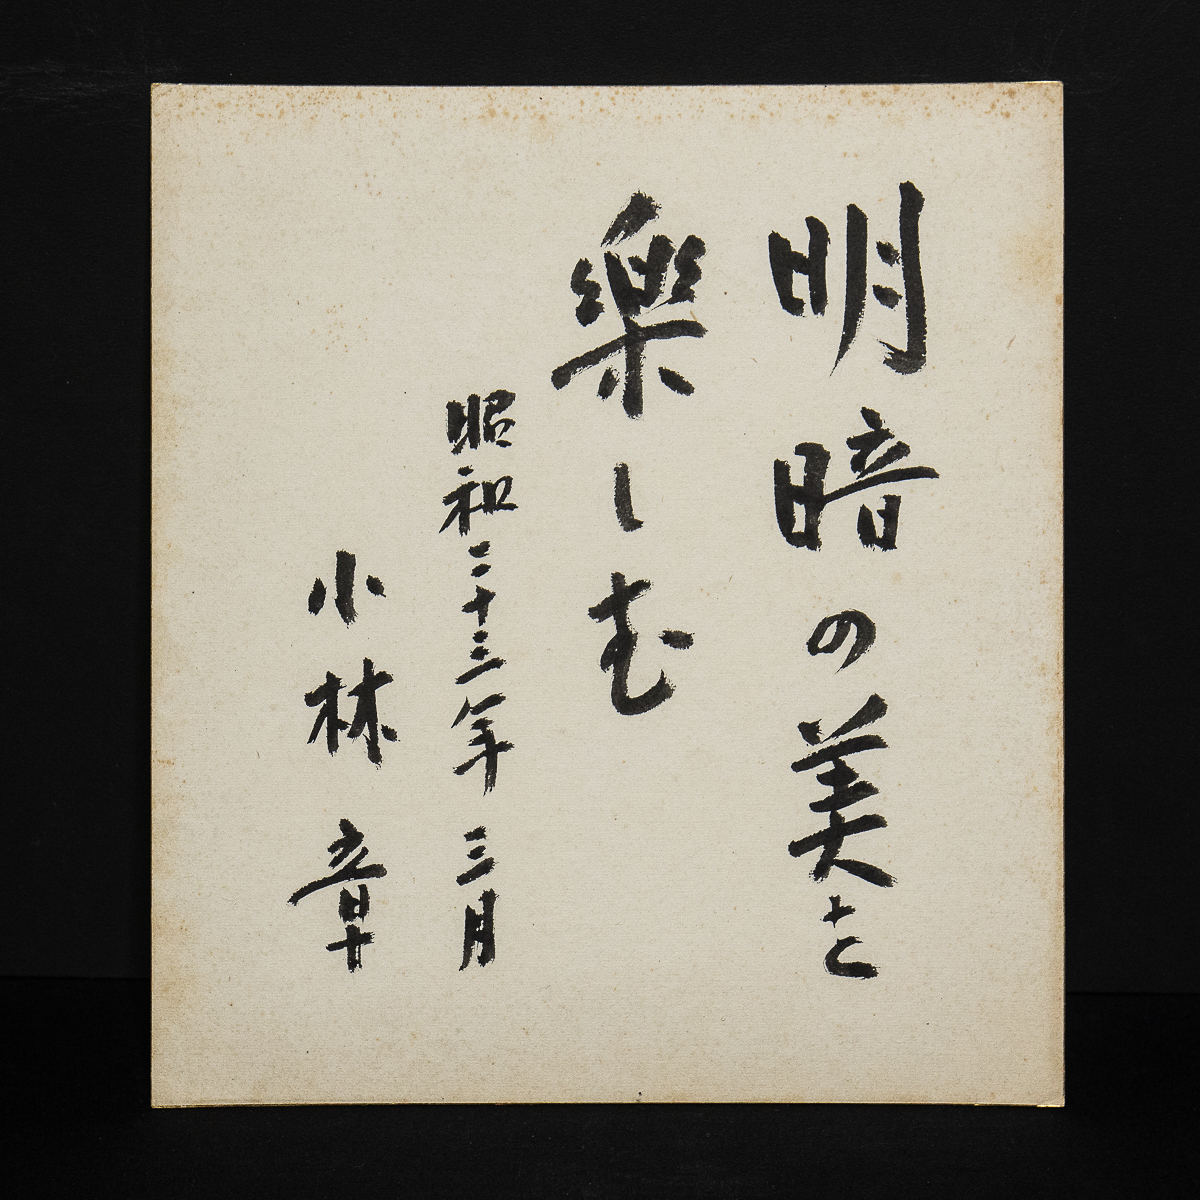 明暗の美を
樂しむ
昭和二十三年三月
小林章